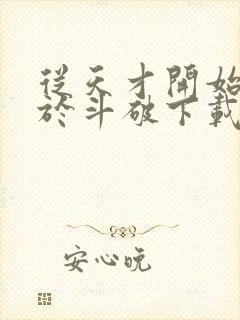 從天才開始
於斗破下載
安心晥